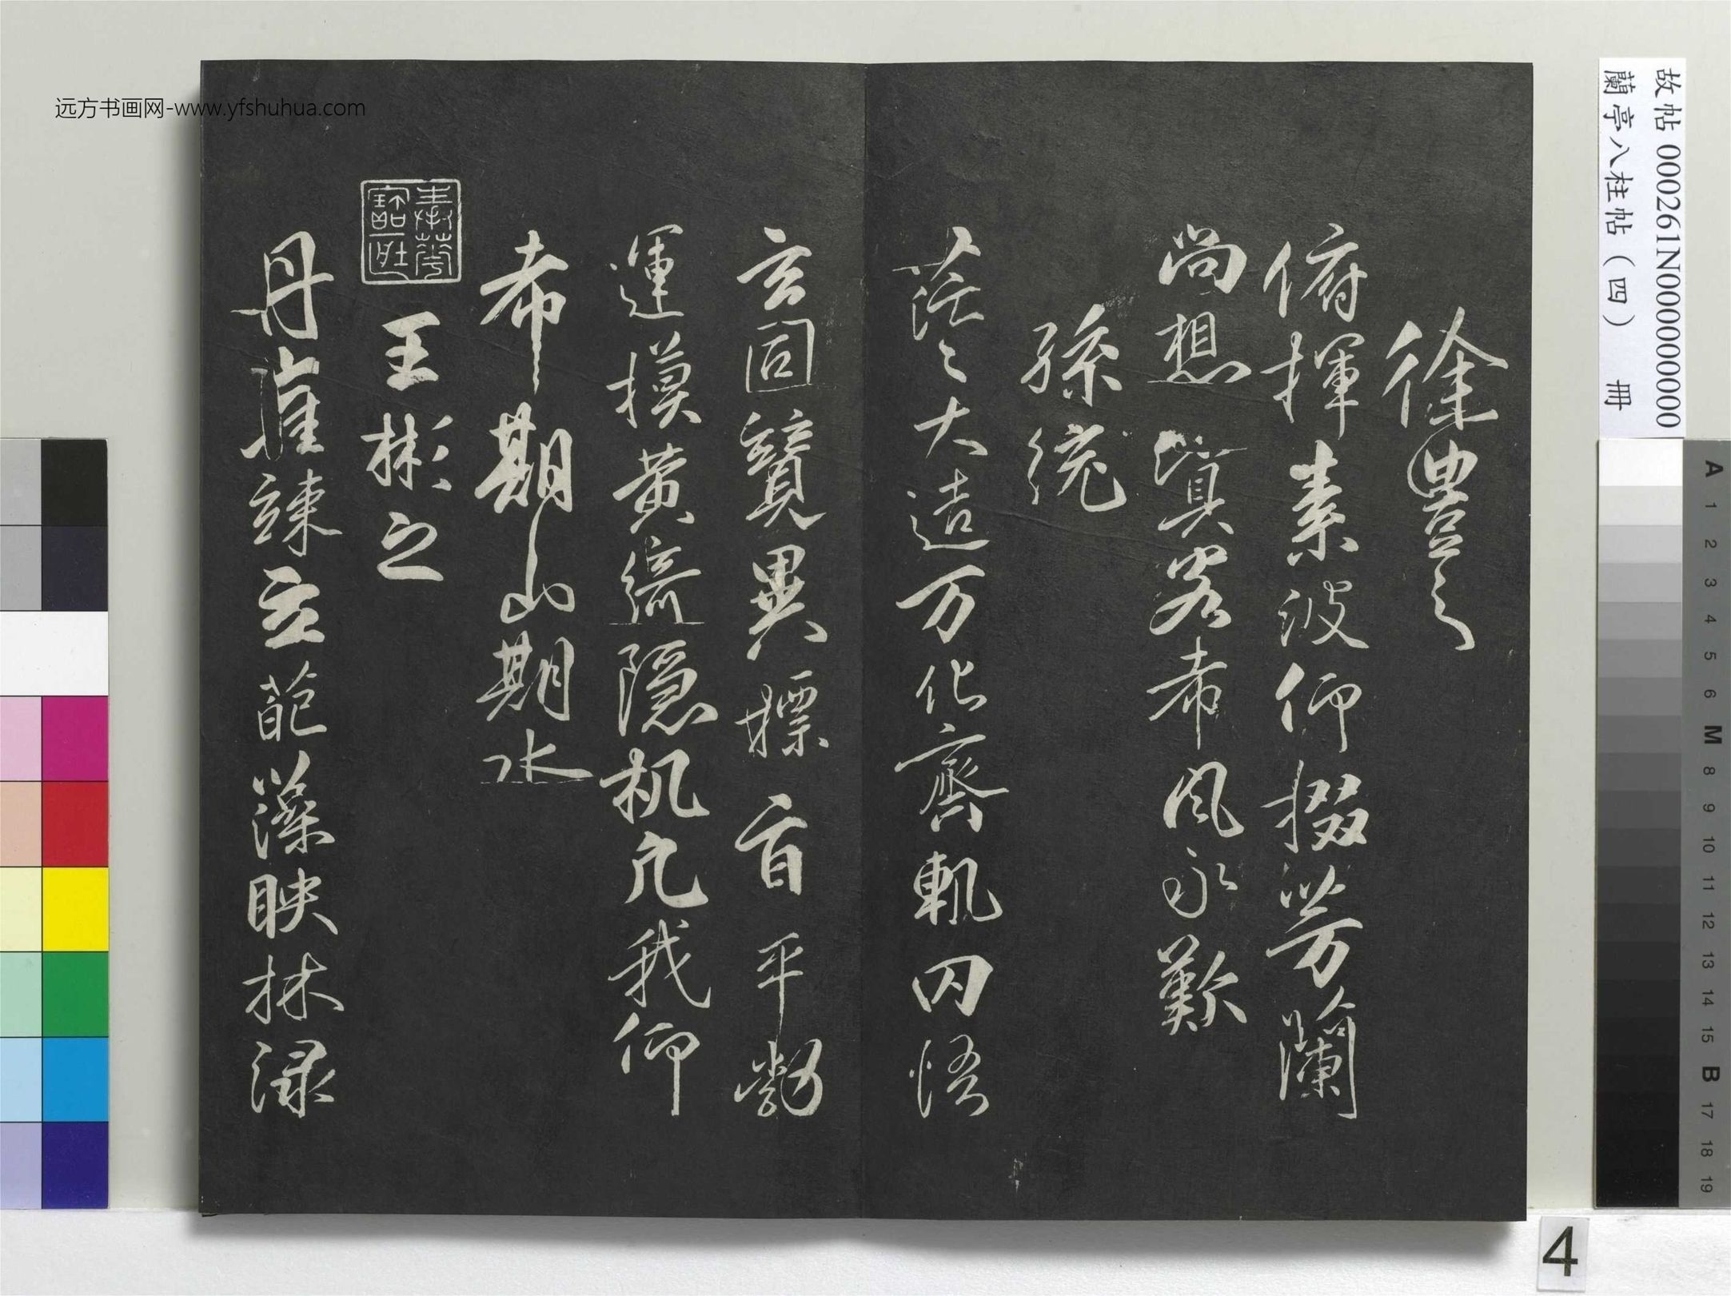 远方书画网-www.yfshuhua.com
故帖 000261N000000000
蘭亭八柱帖（四） 冊
徐豊之
俯揮素波仰掇芳蘭
尚想客希風永歎
孫統
茫々大造万化齊軌罔悟
玄同競異摽旨平勃
運摸黃綺隱机凡我仰
希期山期水
王彬之
丹崖竦立葩藻映林淥
A 1 2 3 4 5 6 M 8 9 10 11 12 13 14 15 B 17 18 19
4